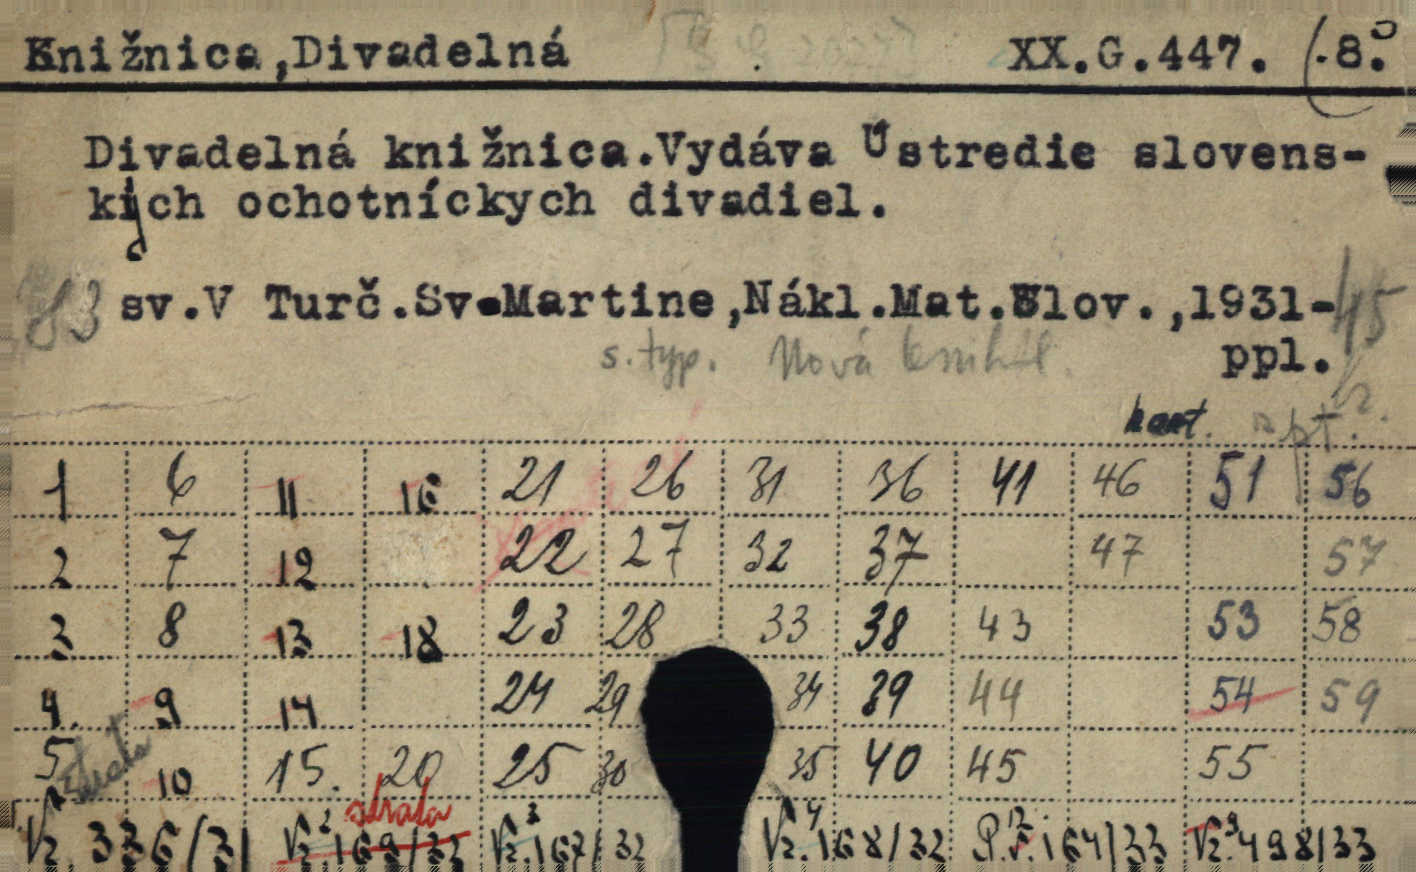 Knižnica,Divadelná XX.G.447. (.8.
Divadelná knižnica.Vydáva Ústredie slovens-
kých ochotníckych divadiel.
83 sv.V Turč.Sv.Martine,Nákl.Mat.Slov.,1931-45
s. typ. Nová ppl.
kart.
1 6 11 16 21 26 31 36 41 46 51 56
2 7 12 22 27 32 37 47 57
3 8 13 18 23 28 33 38 43 53 58
4. 9 14 24 29 34 39 44 54 59
5 strata 10 15. 20 25 30 35 40 45 55
strata
Vz. 336/31 Vz.² 169/33 Vz.³ 167/32 Vz.⁴ 168/32 P.v.¹² 164/33 Vz.⁹ 498/33